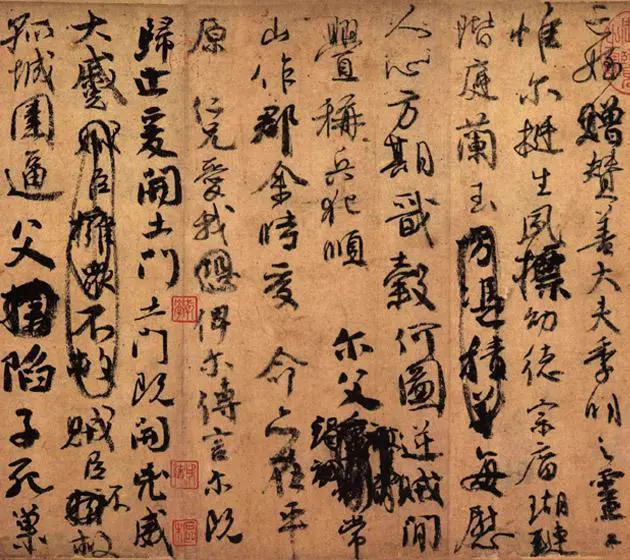 亡姪贈贊善大夫季明之靈曰
惟尔挺生夙標幼德宗廟瑚璉
階庭蘭玉方憑積善每慰
人心方期戩穀何圖逆賊閒
釁稱兵犯順尔父竭誠常
山作郡余時受命亦在平
原仁兄愛我恐俾尔傳言尔既
歸止爰開土門土門既開凶威
大蹙賊臣擁眾不救賊臣不救
孤城圍逼父陷子死巢